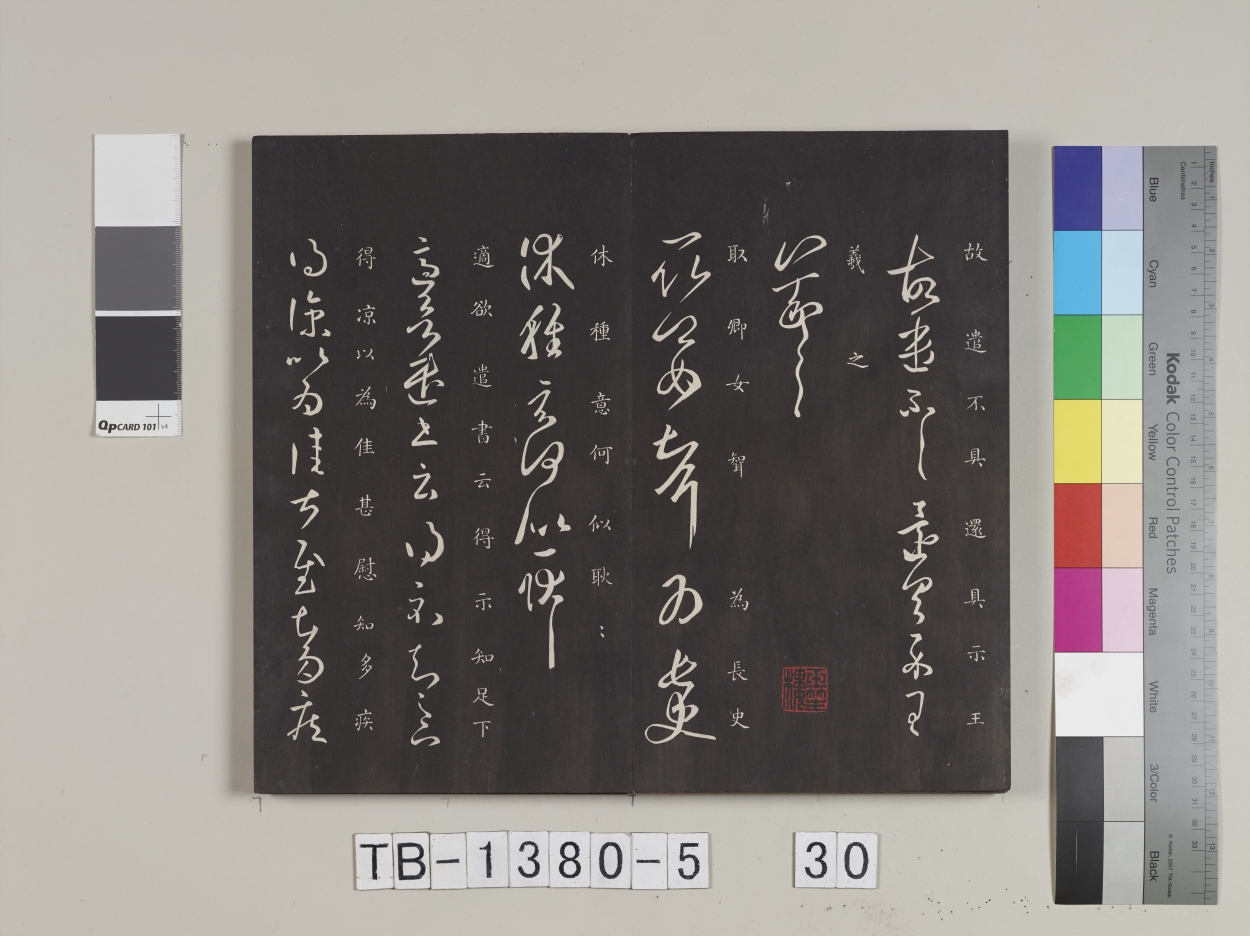 故遣不具還具示王
故遣不具還具示王
羲之
羲之
取卿女聟為長史
取卿女聟為長史
休種意何似耿〻
休種意何似耿〻
適欲遣書云得示知足下
適欲遣書云得示知足下
得凉以為佳甚慰知多疾
得凉以為佳甚慰知多疾
QPCARD 101 v4
TB-1380-5 30
Kodak Color Control Patches
Blue
Cyan
Green
Yellow
Red
Magenta
White
3/Color
Black
Inches
Centimetres